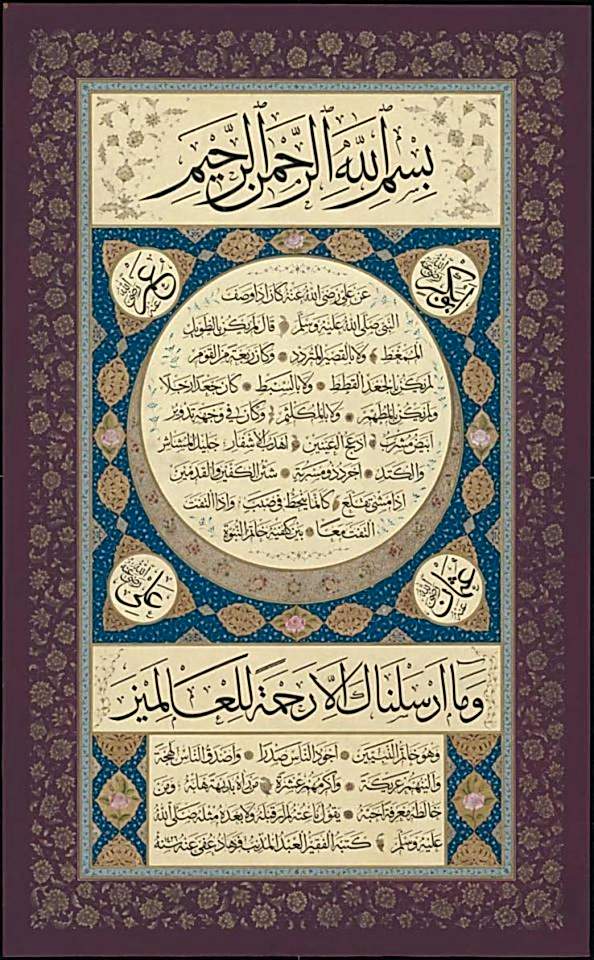 بِسْمِ اللّٰهِ الرَّحْمٰنِ الرَّحِيمِ
ابوبكر رضى الله عنه
عمر رضى الله عنه
عن على رضى الله عنه كان اذا وصف
النبى صلى الله عليه وسلم قال لم يكن بالطويل
الممغط ولا بالقصير المتردد وكان ربعة من القوم
لم يكن بالجعد القطط ولا بالسبط كان جعدا رجلا
ولم يكن بالمطهم ولا بالمكلثم وكان فى وجهه تدوير
ابيض مشرب ادعج العينين اهدب الاشفار جليل المشاش
والكتد اجرد ذو مسربة شثن الكفين والقدمين
اذا مشى تقلع كانما ينحط فى صبب واذا التفت
التفت معا بين كتفيه خاتم النبوة
عثمان رضى الله عنه
على رضى الله عنه
وما ارسلناك الا رحمة للعالمين
وهو خاتم النبيين اجود الناس صدرا واصدق الناس لهجة
والينهم عريكة واكرمهم عشرة من رآه بديهة هابه ومن
خالطه معرفة احبه يقول ناعته لم ار قبله ولا بعده مثله صلى الله
عليه وسلم كتبه الفقير العبد المذنب فرهاد عفى عنه سنة